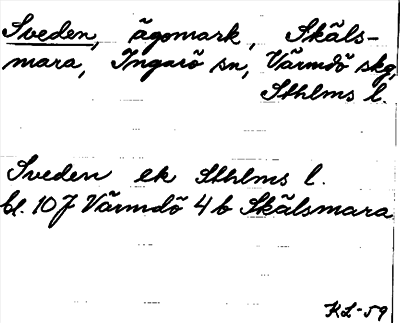 Sveden, ägomark, Skäls-
mara, Ingarö sn, Värmdö skg,
Sthlms l.
Sveden ek Sthlms l.
bl. 107 Värmdö 4 b Skälsmara
KL-59